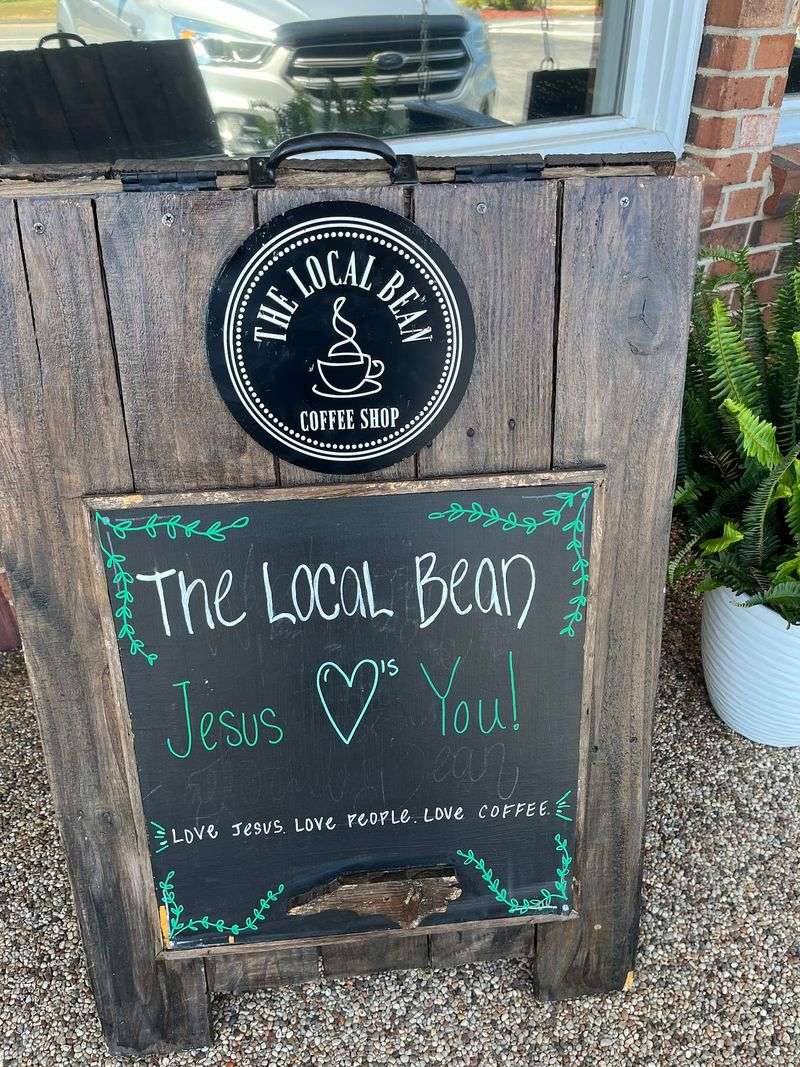 THE LOCAL BEAN
COFFEE SHOP
The LOCAL Bean
Jesus ♡'s You!
LOVE JESUS. LOVE PEOPLE. LOVE COFFEE.